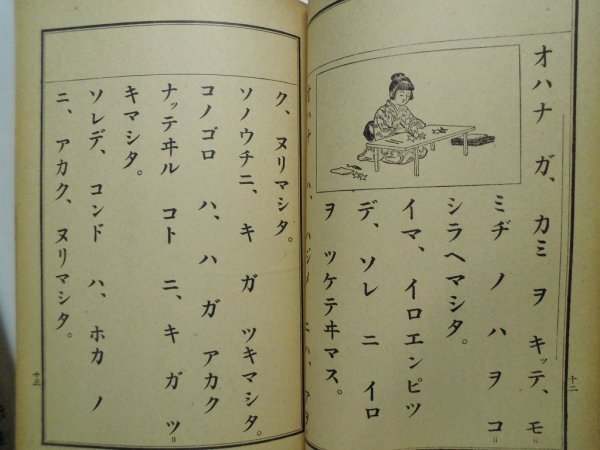 オハナ ガ、カミ ヲ キッテ、モ
ミヂ ノ ハ ヲ コ
シラヘマシタ。
イマ、イロエンピツ
デ、ソレ ニ イロ
ヲ ツケテヰマス。
十二
ク、ヌリマシタ。
ソノウチニ、キ ガ ツキマシタ。
コノゴロ ハ、ハ ガ アカク
ナッテヰル コト ニ、キ ガ ツ
キマシタ。
ソレデ、コンド ハ、ホカ ノ
ニ、アカク、ヌリマシタ。
十三